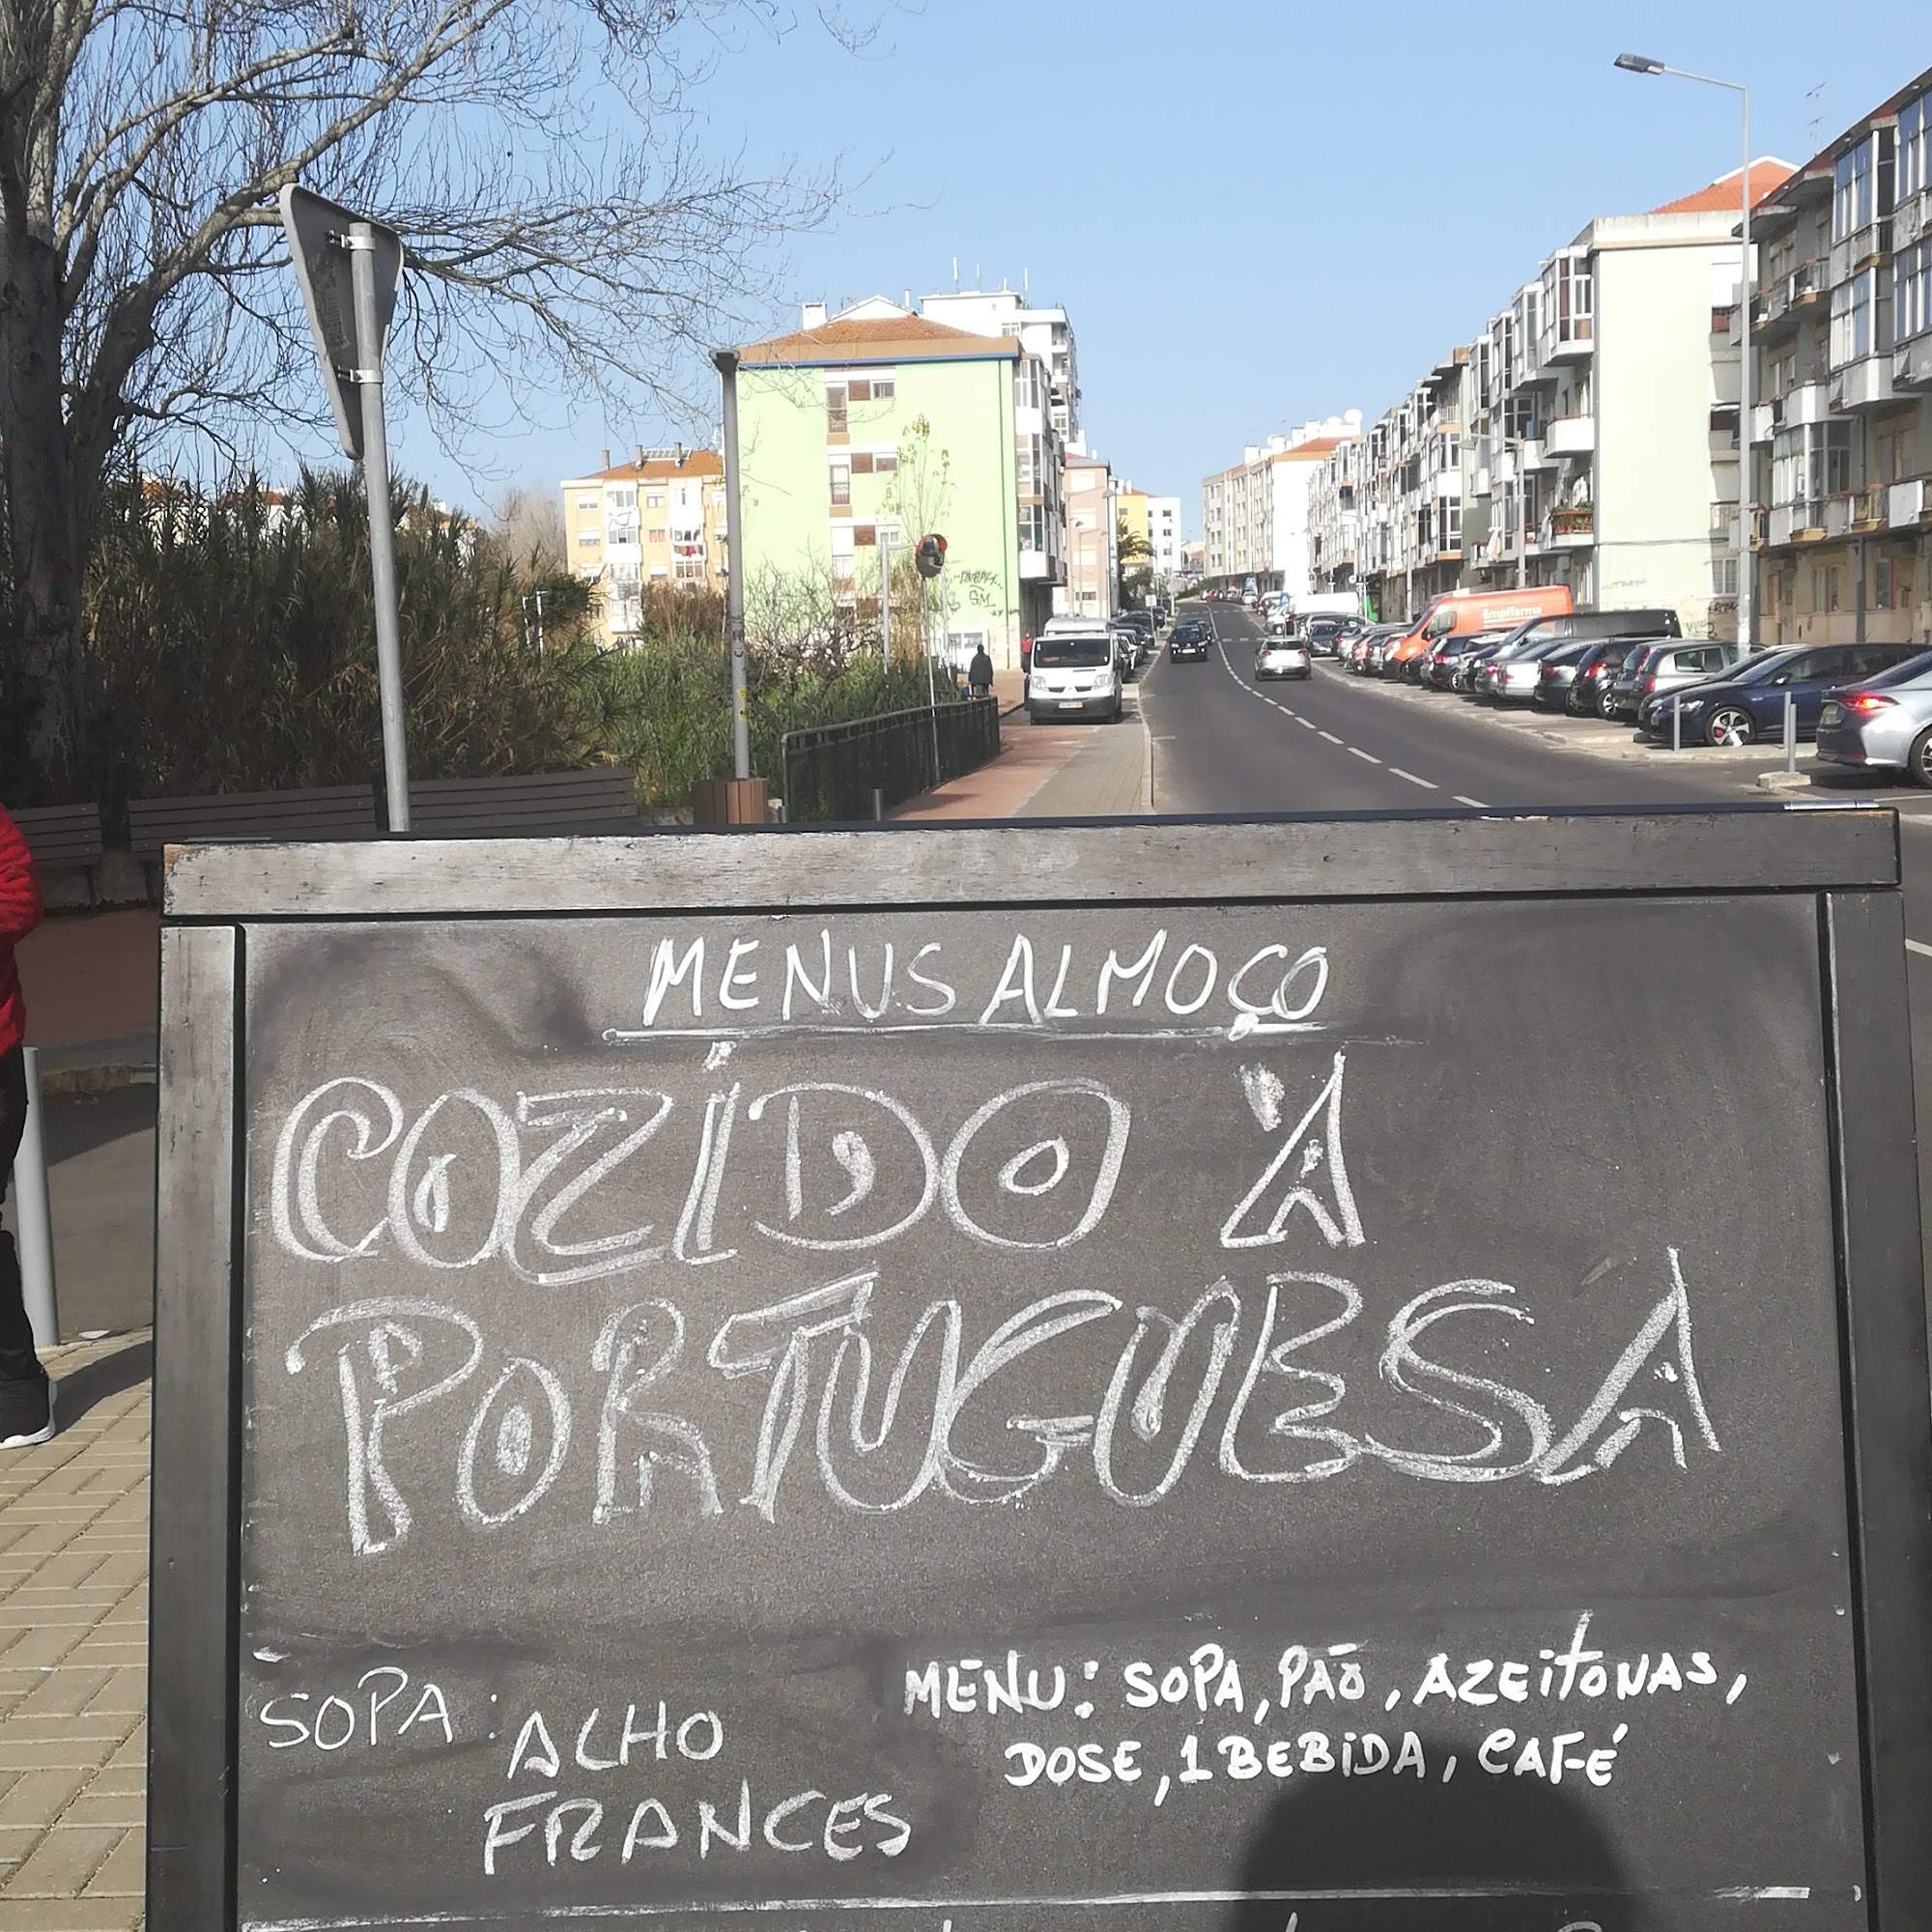 Empifarma
MENUS ALMOÇO
COZIDO À
PORTUGUESA
SOPA: ALHO
FRANCES
MENU: SOPA, PÃO, AZEITONAS,
DOSE, 1 BEBIDA, CAFÉ